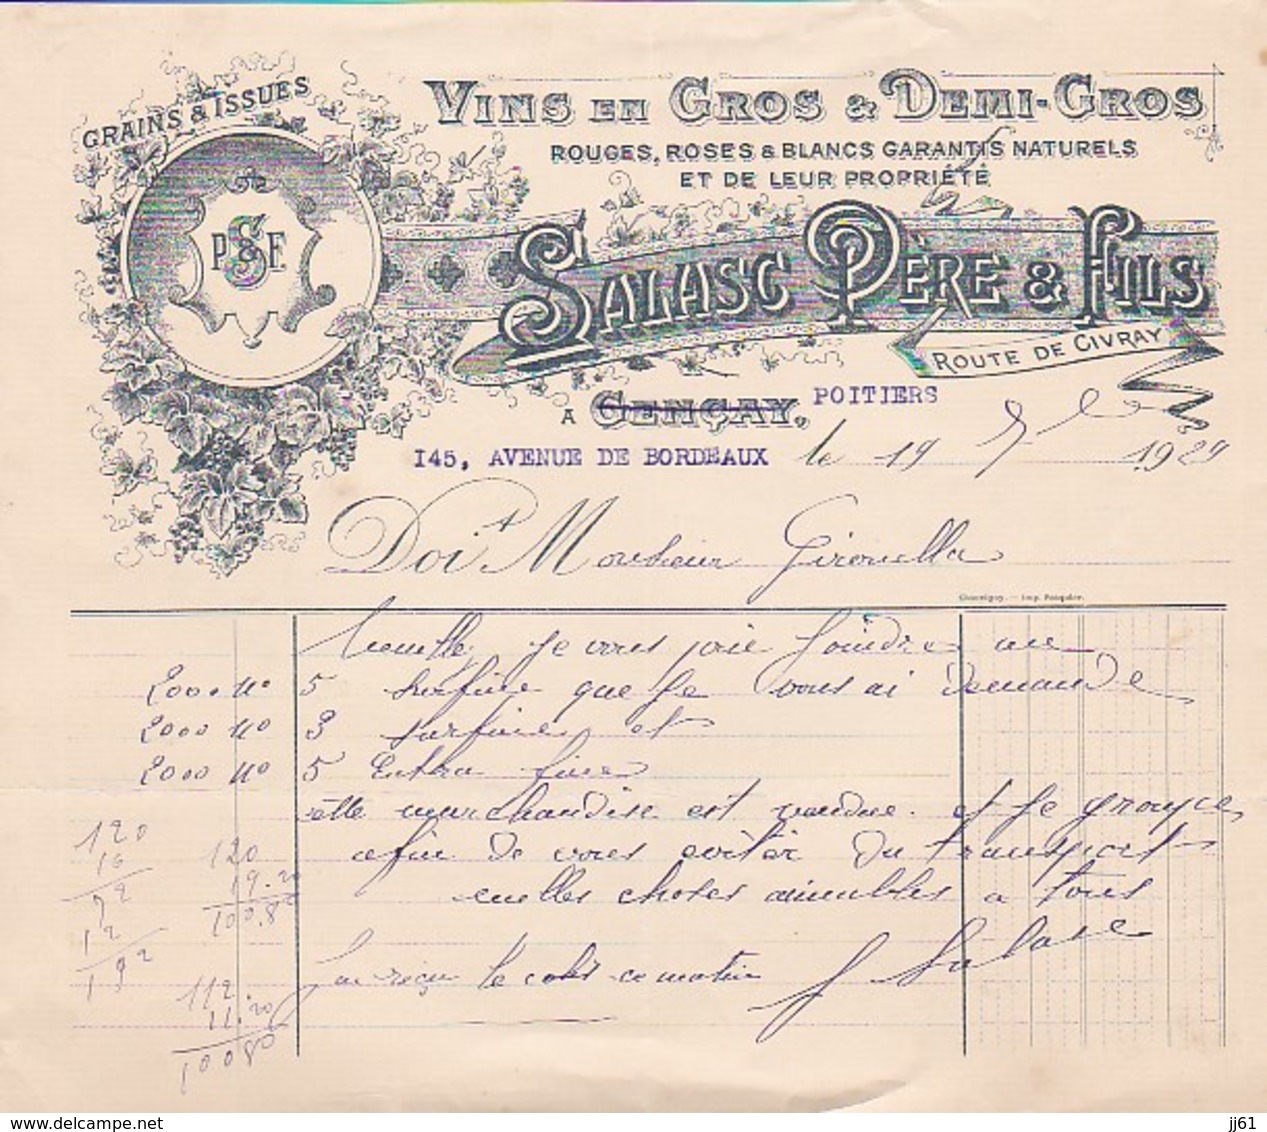 GRAINS & ISSUES
VINS EN GROS & DEMI-GROS
ROUGES, ROSES & BLANCS GARANTIS NATURELS
ET DE LEUR PROPRIÉTÉ
P. S & F.
SALASC PÈRE & FILS
ROUTE DE CIVRAY
A GENÇAY, POITIERS
145, AVENUE DE BORDEAUX le 19 1929
Doit Monsieur Gironella
Imp. Pasquier.
je vous prie joindre au
2000 no 5 surfine que je vous ai demande
2000 no 3 surfine et
2000 no 5 Extra fine
elle marchandise est vendue et je groupe
afin de vous eviter du transport
milles choses aimables a tous
J'ai reçu le colis ce matin J Salasc
120
16
12
192
120
19.20
100.80
112.
11.20
10080
delcampe.net
jj61